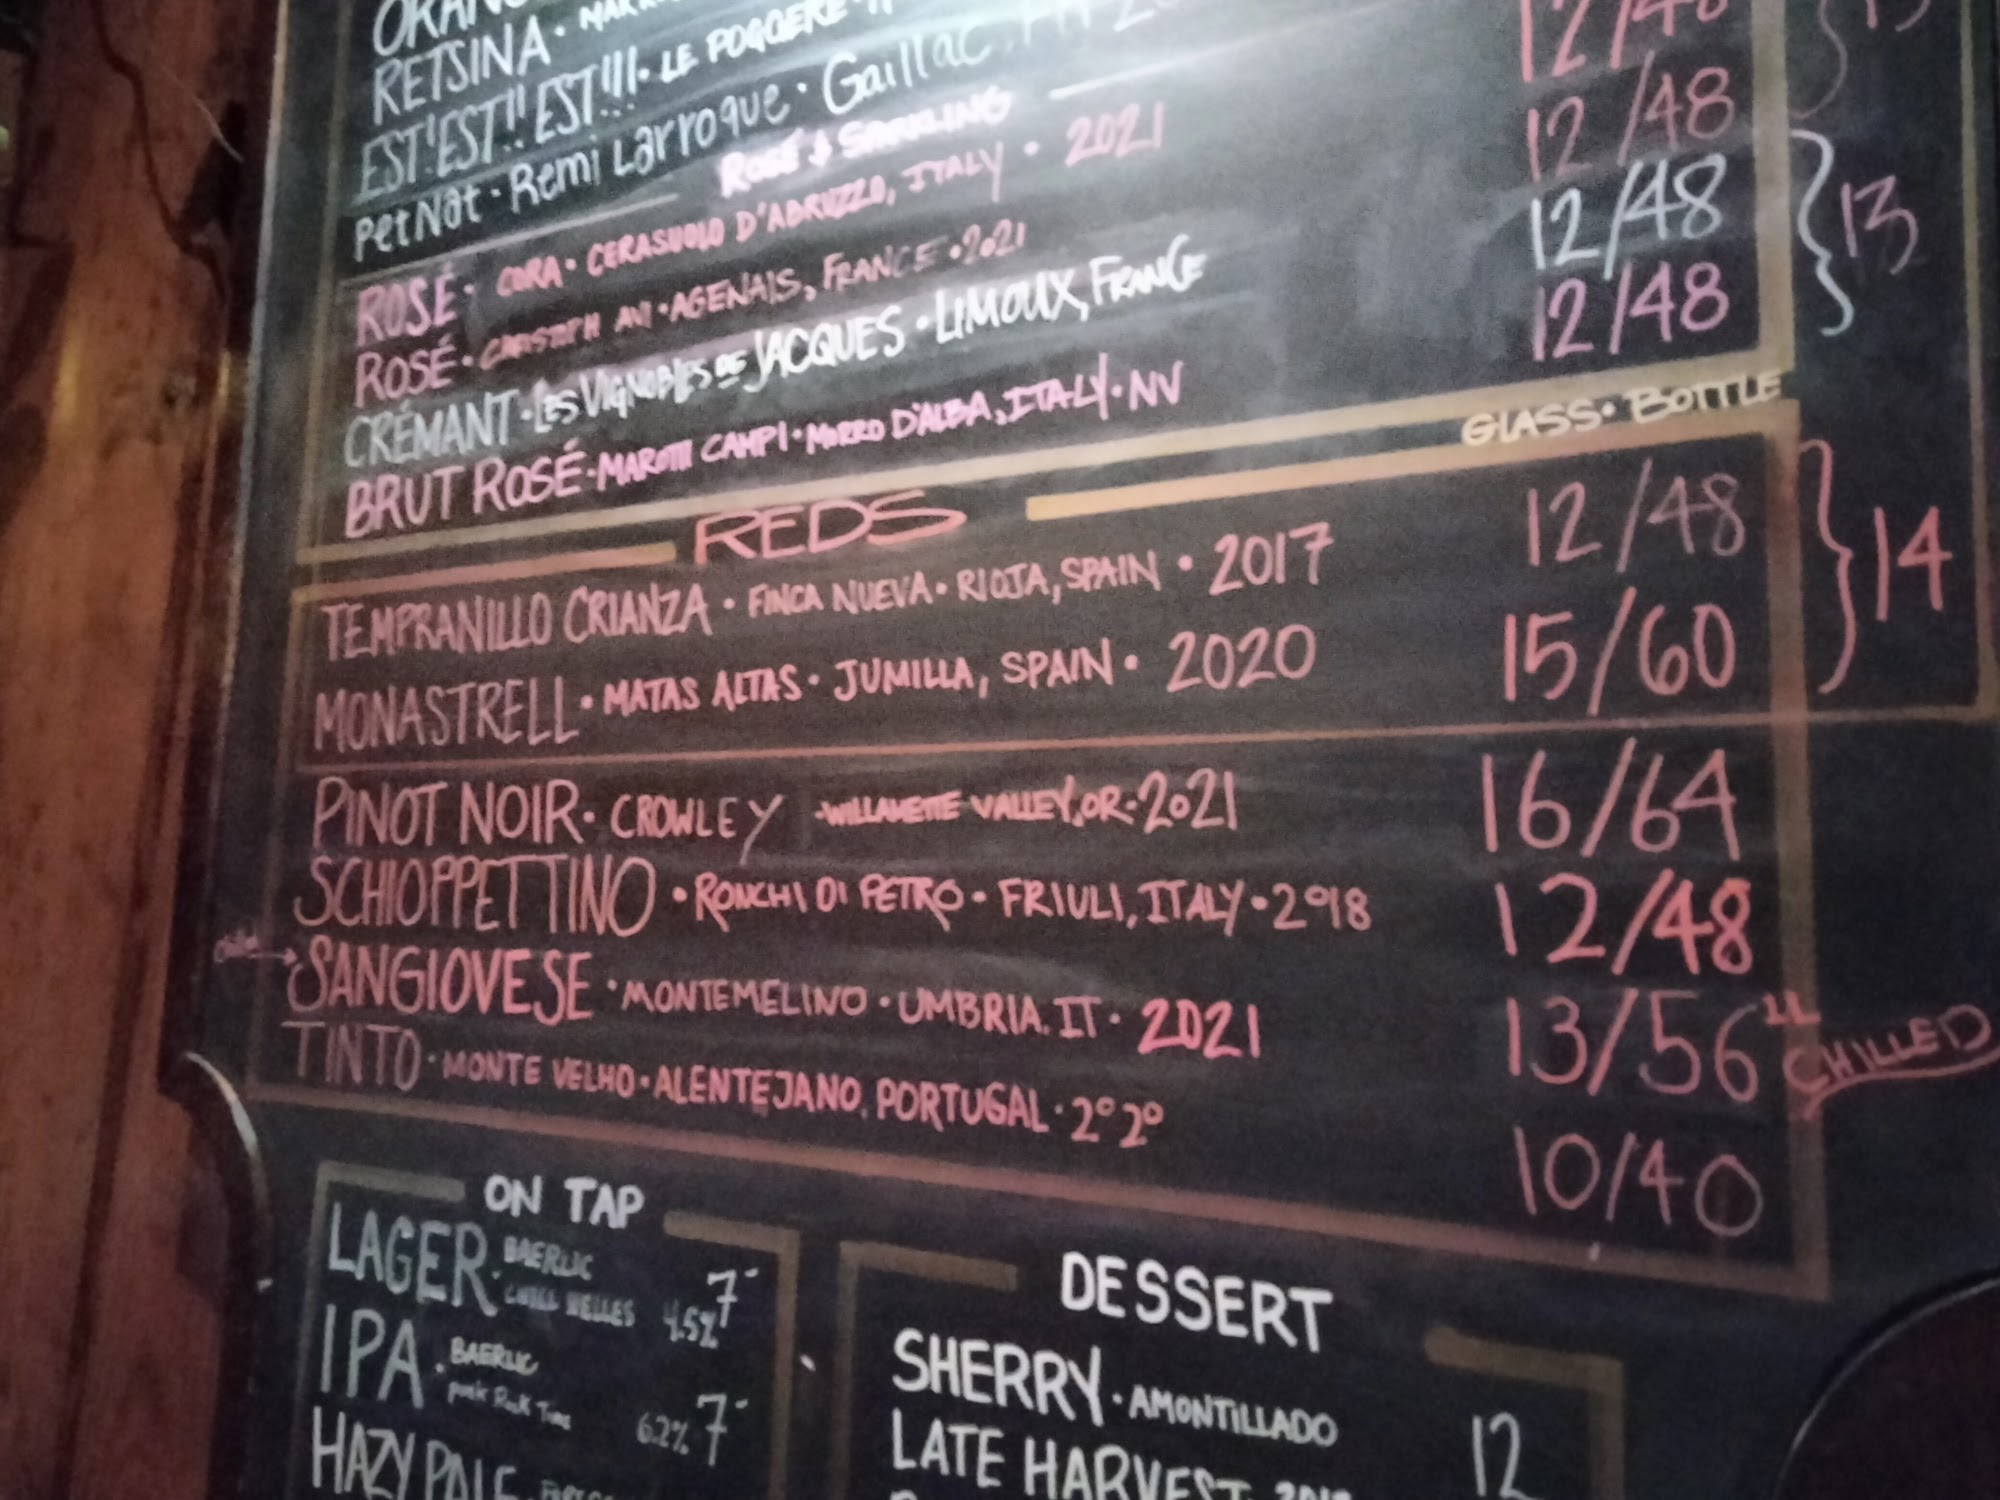 RETSINA ·
EST!EST!!EST!!! · LE POGGERE
Pet Nat · Remi Larroque · Gaillac, FR
12/48
ROSÉ & SPARKLING
ROSÉ · CORA · CERASUOLO D'ABRUZZO, ITALY · 2021 12/48
ROSÉ · CHRISTOPH AVI · AGENAIS, FRANCE · 2021 12/48
CRÉMANT · LES VIGNOBLES DE JACQUES · LIMOUX, FRANCE 12/48
13
BRUT ROSÉ · MAROTTI CAMPI · MORRO D'ALBA, ITALY · NV
GLASS · BOTTLE
REDS
TEMPRANILLO CRIANZA · FINCA NUEVA · RIOJA, SPAIN · 2017 12/48
MONASTRELL · MATAS ALTAS · JUMILLA, SPAIN · 2020 15/60
14
PINOT NOIR · CROWLEY · WILLAMETTE VALLEY, OR · 2021 16/64
SCHIOPPETTINO · RONCHI DI PETRO · FRIULI, ITALY · 2018 12/48
SANGIOVESE · MONTEMELINO · UMBRIA, IT · 2021 13/56 1L CHILLED
TINTO · MONTE VELHO · ALENTEJANO, PORTUGAL · 2020 10/40
ON TAP
LAGER · BAERLIC
CHILL HELLES 4.5% 7-
IPA · BAERLIC
Punk Rock Time 6.2% 7-
HAZY PALE ·
DESSERT
SHERRY · AMONTILLADO 12
LATE HARVEST